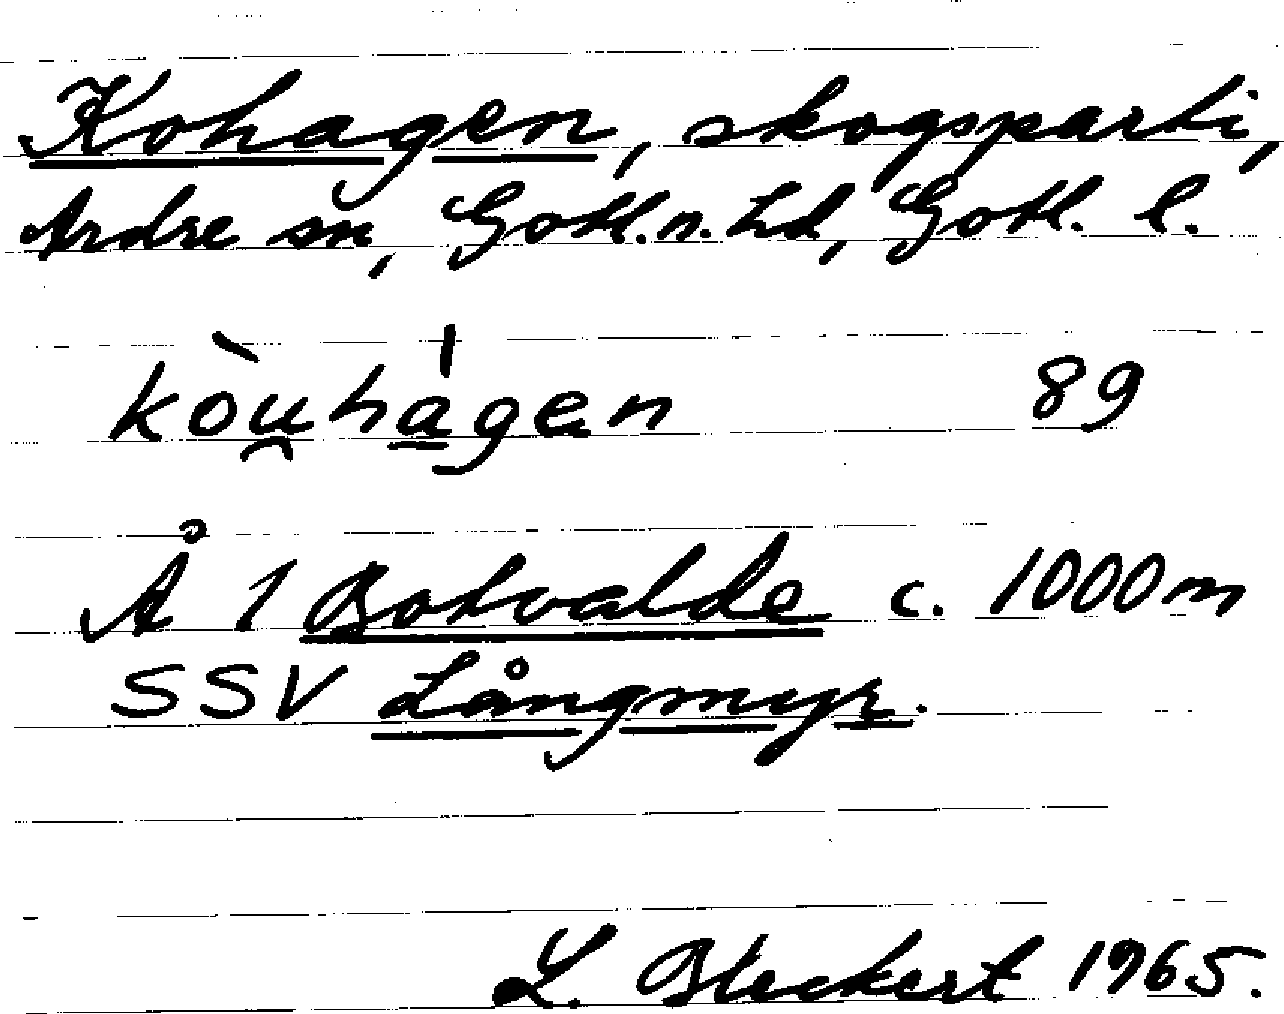 Kohagen, skogsparti,
Ardre sn, Gotl.n.hd, Gotl. l.
kòu̯há̱gen 89
Å 1 Botvalde c. 1000 m
SSV Långmyr.
L. Bleckert 1965.